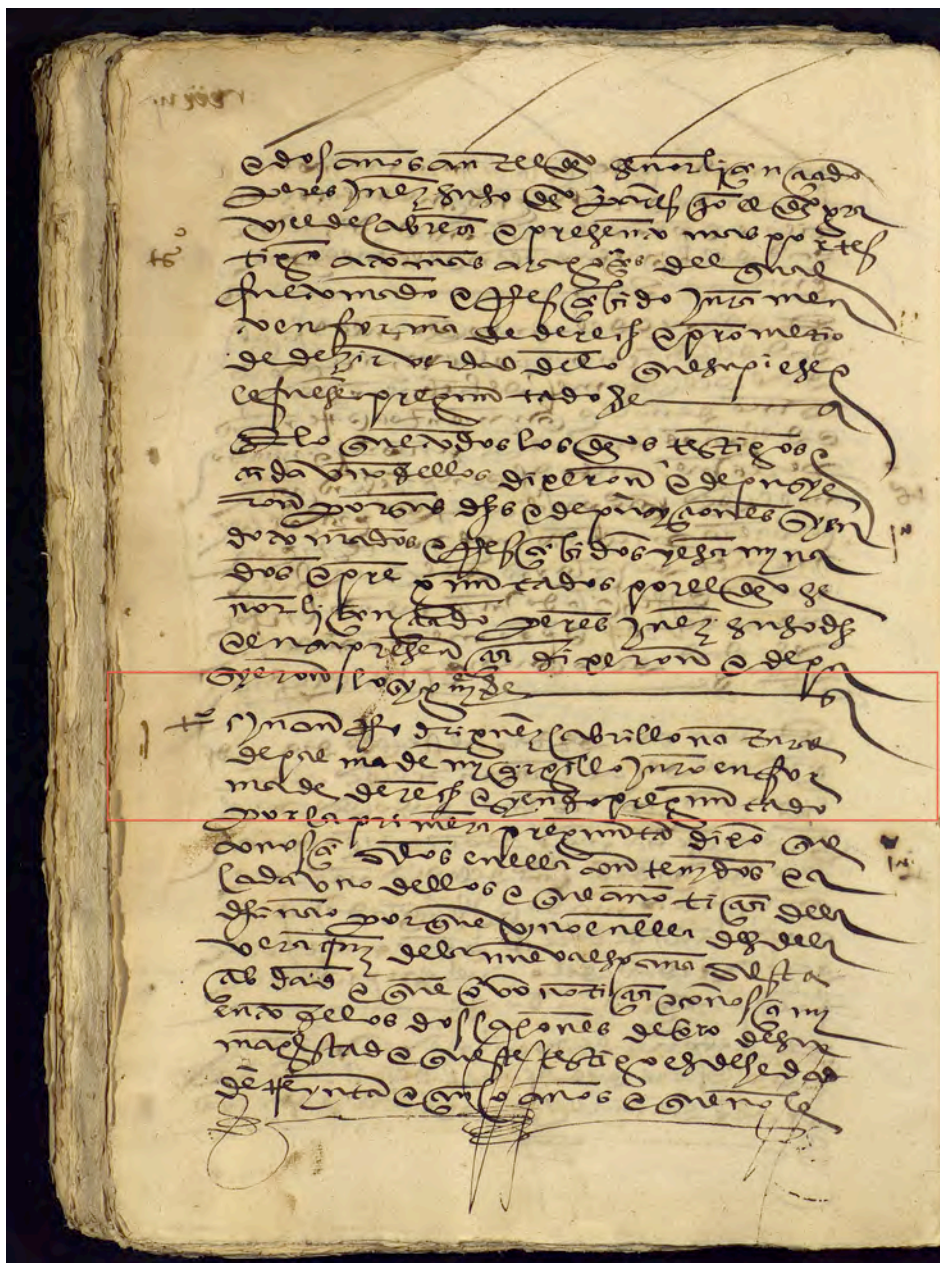 e dos años ante el dho señor licenciado
peres juez suso dho paresçio el dho xpa
de cabrera e presento mas por tes
tº
tigo a tomas aragoçes del qual
fue tomado e resçibido juramen
to en forma de derecho e prometio
de dezir verdad de lo que supiese e
le fuese preguntado
E lo que todos los dhos testigos e
cada vno dellos dixeron e depusye
ron por sus dhos e depusyçiones syen
do tomados e resçibidos y esamyna
dos e preguntados por el dho se
ñor liçençiado peres juez suso dho
e en su presençia dixeron e depu
syeron lo syguiente
tº
juan rodriguez cabrillo natural
de palma de myçergillo juro en for
ma de derecho e syendo preguntado
por la primera pregunta dixo que
conosçe a los en ella contenydos e a
cada vno dellos e que a notiçia dela
porque vino en ella desde la
vera cruz dela nueva españa a esta
çibdad e que tovo notiçia e conosçimy
ento delos dos de oro de su
magestad e que este testigo es de hedad
de treynta e çinco años e que no le